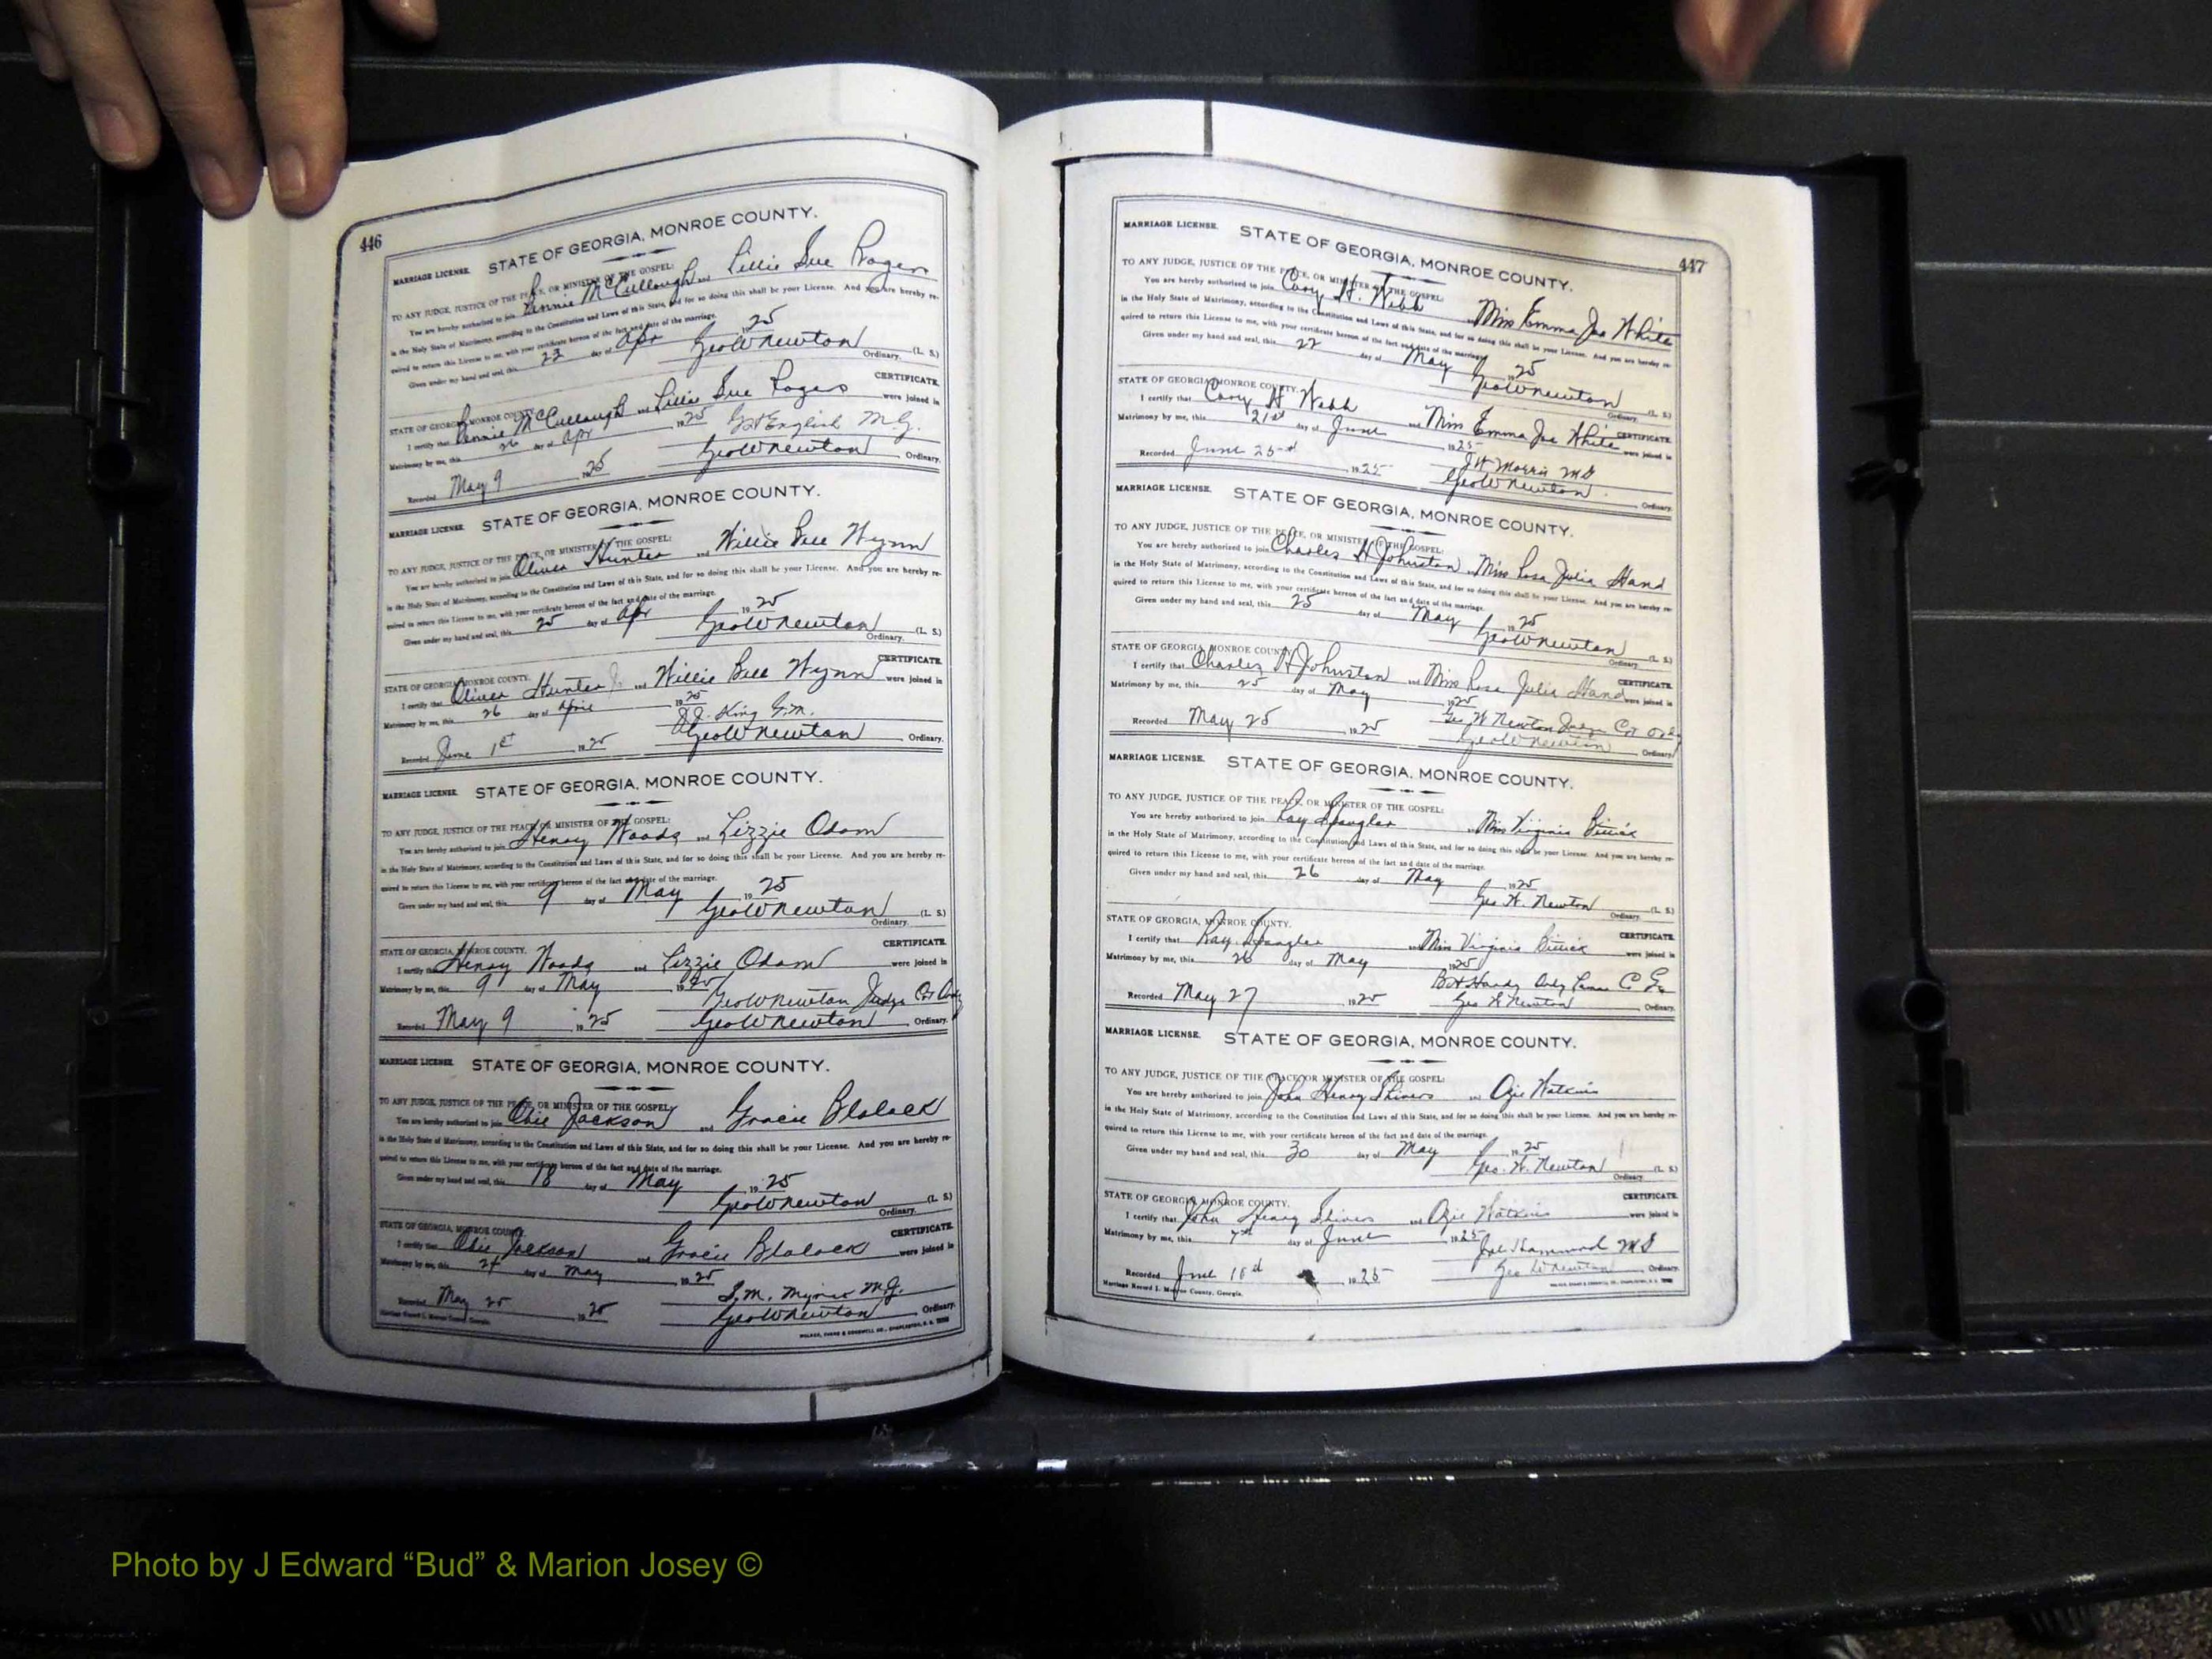 446
MARRIAGE LICENSE. STATE OF GEORGIA, MONROE COUNTY.
TO ANY JUDGE, JUSTICE OF THE PEACE, OR MINISTER OF THE GOSPEL:
You are hereby authorized to join Bennie McCullough and Lillie Sue Rogers
in the Holy State of Matrimony, according to the Constitution and Laws of this State, and for so doing this shall be your License. And you are hereby re-
quired to return this License to me, with your certificate hereon of the fact and date of the marriage.
Given under my hand and seal, this 23 day of Apr 1925
Geo W Newton (L. S.)
Ordinary.
STATE OF GEORGIA, MONROE COUNTY. CERTIFICATE.
I certify that Bennie McCullough and Lillie Sue Rogers were joined in
Matrimony by me, this 26 day of Apr 1925 English M.G.
Recorded May 9 1925 Geo W Newton Ordinary.
MARRIAGE LICENSE. STATE OF GEORGIA, MONROE COUNTY.
TO ANY JUDGE, JUSTICE OF THE PEACE, OR MINISTER OF THE GOSPEL:
You are hereby authorized to join Oliver Hunter and Willie Bell Wynn
in the Holy State of Matrimony, according to the Constitution and Laws of this State, and for so doing this shall be your License. And you are hereby re-
quired to return this License to me, with your certificate hereon of the fact and date of the marriage.
Given under my hand and seal, this 25 day of Apr 1925
Geo W Newton (L. S.)
Ordinary.
STATE OF GEORGIA, MONROE COUNTY. CERTIFICATE.
I certify that Oliver Hunter and Willie Bell Wynn were joined in
Matrimony by me, this 26 day of April 1925
King G.M.
Recorded June 1st 1925 Geo W Newton Ordinary.
MARRIAGE LICENSE. STATE OF GEORGIA, MONROE COUNTY.
TO ANY JUDGE, JUSTICE OF THE PEACE, OR MINISTER OF THE GOSPEL:
You are hereby authorized to join Henry Woods and Lizzie Odom
in the Holy State of Matrimony, according to the Constitution and Laws of this State, and for so doing this shall be your License. And you are hereby re-
quired to return this License to me, with your certificate hereon of the fact and date of the marriage.
Given under my hand and seal, this 9 day of May 1925
Geo W Newton (L. S.)
Ordinary.
STATE OF GEORGIA, MONROE COUNTY. CERTIFICATE.
I certify that Henry Woods and Lizzie Odom were joined in
Matrimony by me, this 9 day of May 1925
Geo W Newton Judge Crt Ordy
Recorded May 9 1925 Geo W Newton Ordinary.
MARRIAGE LICENSE. STATE OF GEORGIA, MONROE COUNTY.
TO ANY JUDGE, JUSTICE OF THE PEACE, OR MINISTER OF THE GOSPEL:
You are hereby authorized to join Obie Jackson and Gracie Blalock
in the Holy State of Matrimony, according to the Constitution and Laws of this State, and for so doing this shall be your License. And you are hereby re-
quired to return this License to me, with your certificate hereon of the fact and date of the marriage.
Given under my hand and seal, this 18 day of May 1925
Geo W Newton (L. S.)
Ordinary.
STATE OF GEORGIA, MONROE COUNTY. CERTIFICATE.
I certify that Obie Jackson and Gracie Blalock were joined in
Matrimony by me, this 24 day of May 1925
S.M. M.G.
Recorded May 25 1925 Geo W Newton Ordinary.
Marriage Record I. Monroe County, Georgia. WALKER, EVANS & COGSWELL CO., CHARLESTON, S. C.
447
MARRIAGE LICENSE. STATE OF GEORGIA, MONROE COUNTY.
TO ANY JUDGE, JUSTICE OF THE PEACE, OR MINISTER OF THE GOSPEL:
You are hereby authorized to join Cary H. Webb and Miss Emma Joe White
in the Holy State of Matrimony, according to the Constitution and Laws of this State, and for so doing this shall be your License. And you are hereby re-
quired to return this License to me, with your certificate hereon of the fact and date of the marriage.
Given under my hand and seal, this 22 day of May 1925
Geo W Newton (L. S.)
Ordinary.
STATE OF GEORGIA, MONROE COUNTY. CERTIFICATE.
I certify that Cary H Webb and Miss Emma Joe White were joined in
Matrimony by me, this 21st day of June 1925
Morris MG
Recorded June 25 1925 Geo W Newton Ordinary.
MARRIAGE LICENSE. STATE OF GEORGIA, MONROE COUNTY.
TO ANY JUDGE, JUSTICE OF THE PEACE, OR MINISTER OF THE GOSPEL:
You are hereby authorized to join Charles H Johnston and Miss Rosa Julia Hand
in the Holy State of Matrimony, according to the Constitution and Laws of this State, and for so doing this shall be your License. And you are hereby re-
quired to return this License to me, with your certificate hereon of the fact and date of the marriage.
Given under my hand and seal, this 25 day of May 1925
Geo W Newton (L. S.)
Ordinary.
STATE OF GEORGIA, MONROE COUNTY. CERTIFICATE.
I certify that Charles H Johnston and Miss Rosa Julia Hand were joined in
Matrimony by me, this 25 day of May 1925
Geo W Newton Judge Crt Ordy
Recorded May 25 1925 Geo W Newton Ordinary.
MARRIAGE LICENSE. STATE OF GEORGIA, MONROE COUNTY.
TO ANY JUDGE, JUSTICE OF THE PEACE, OR MINISTER OF THE GOSPEL:
You are hereby authorized to join Ray Spangler and Miss Virginia
in the Holy State of Matrimony, according to the Constitution and Laws of this State, and for so doing this shall be your License. And you are hereby re-
quired to return this License to me, with your certificate hereon of the fact and date of the marriage.
Given under my hand and seal, this 26 day of May 1925
Geo W. Newton (L. S.)
Ordinary.
STATE OF GEORGIA, MONROE COUNTY. CERTIFICATE.
I certify that Ray Spangler and Miss Virginia were joined in
Matrimony by me, this 26 day of May 1925
Hardy Ordy Lamar C Ga
Recorded May 27 1925 Geo W Newton Ordinary.
MARRIAGE LICENSE. STATE OF GEORGIA, MONROE COUNTY.
TO ANY JUDGE, JUSTICE OF THE PEACE, OR MINISTER OF THE GOSPEL:
You are hereby authorized to join John Henry Shivers and Ozie Watkins
in the Holy State of Matrimony, according to the Constitution and Laws of this State, and for so doing this shall be your License. And you are hereby re-
quired to return this License to me, with your certificate hereon of the fact and date of the marriage.
Given under my hand and seal, this 30 day of May 1925
Geo. W. Newton (L. S.)
Ordinary.
STATE OF GEORGIA, MONROE COUNTY. CERTIFICATE.
I certify that John Henry Shivers and Ozie Watkins were joined in
Matrimony by me, this 7th day of June 1925
Hammond MG
Recorded June 1925 Geo W Newton Ordinary.
Marriage Record I. Monroe County, Georgia. WALKER, EVANS & COGSWELL CO., CHARLESTON, S. C.
Photo by J Edward “Bud” & Marion Josey ©